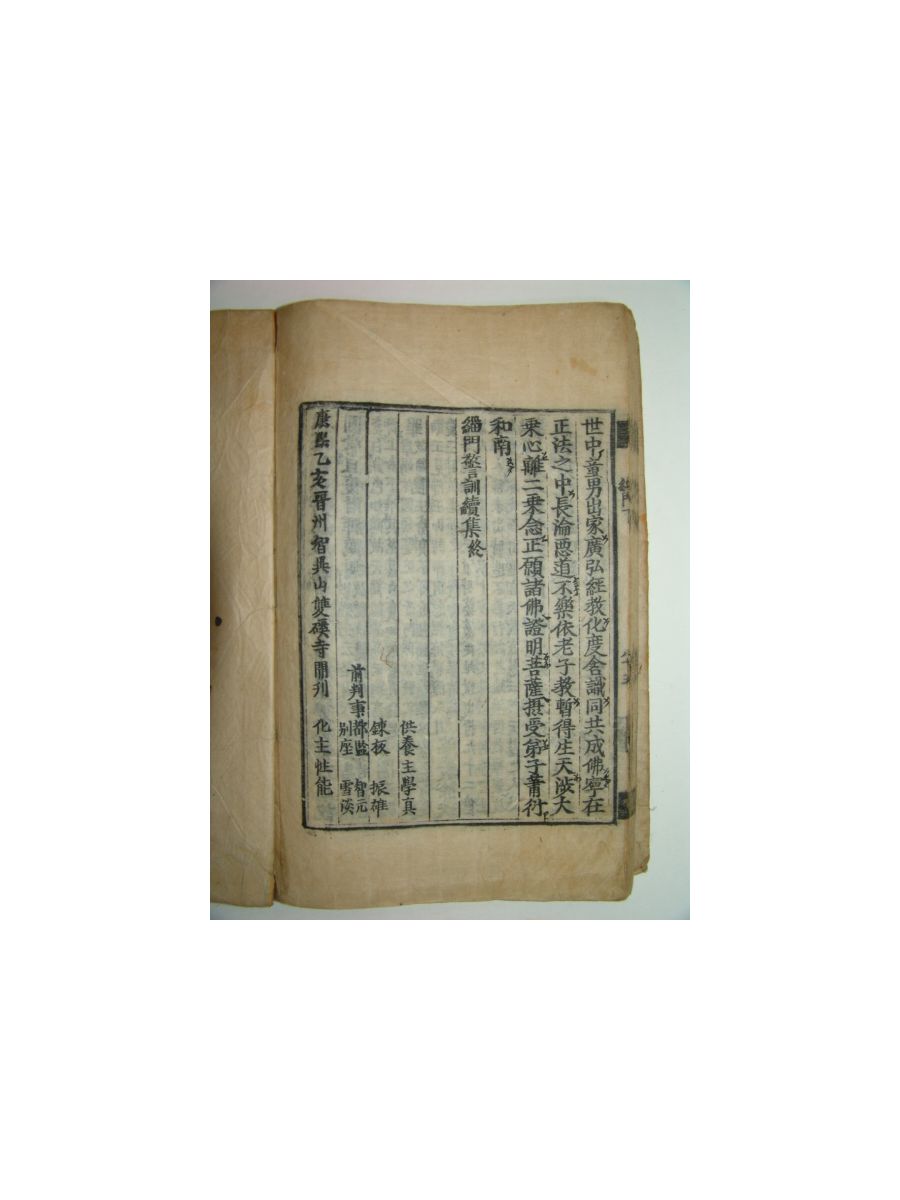 世中童男出家廣弘經教化度含識同共成佛寧在
正法之中長淪惡道不樂依老子教暫得生天涉大
乘心離二乘念正願諸佛證明菩薩摄受弟子蕭衍
和南
緇門警訓續集終
供養主學真
鍊板 振雄
前判事都監 智元
别座 雪
康熙乙亥晋州智異山雙磎寺開刋 化主性能